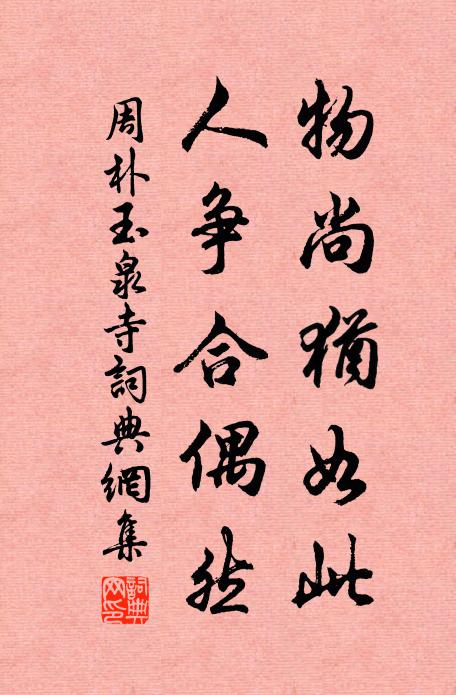 物尚猶如此
人争合偶然
周朴玉泉寺詞典網集
詞典网印